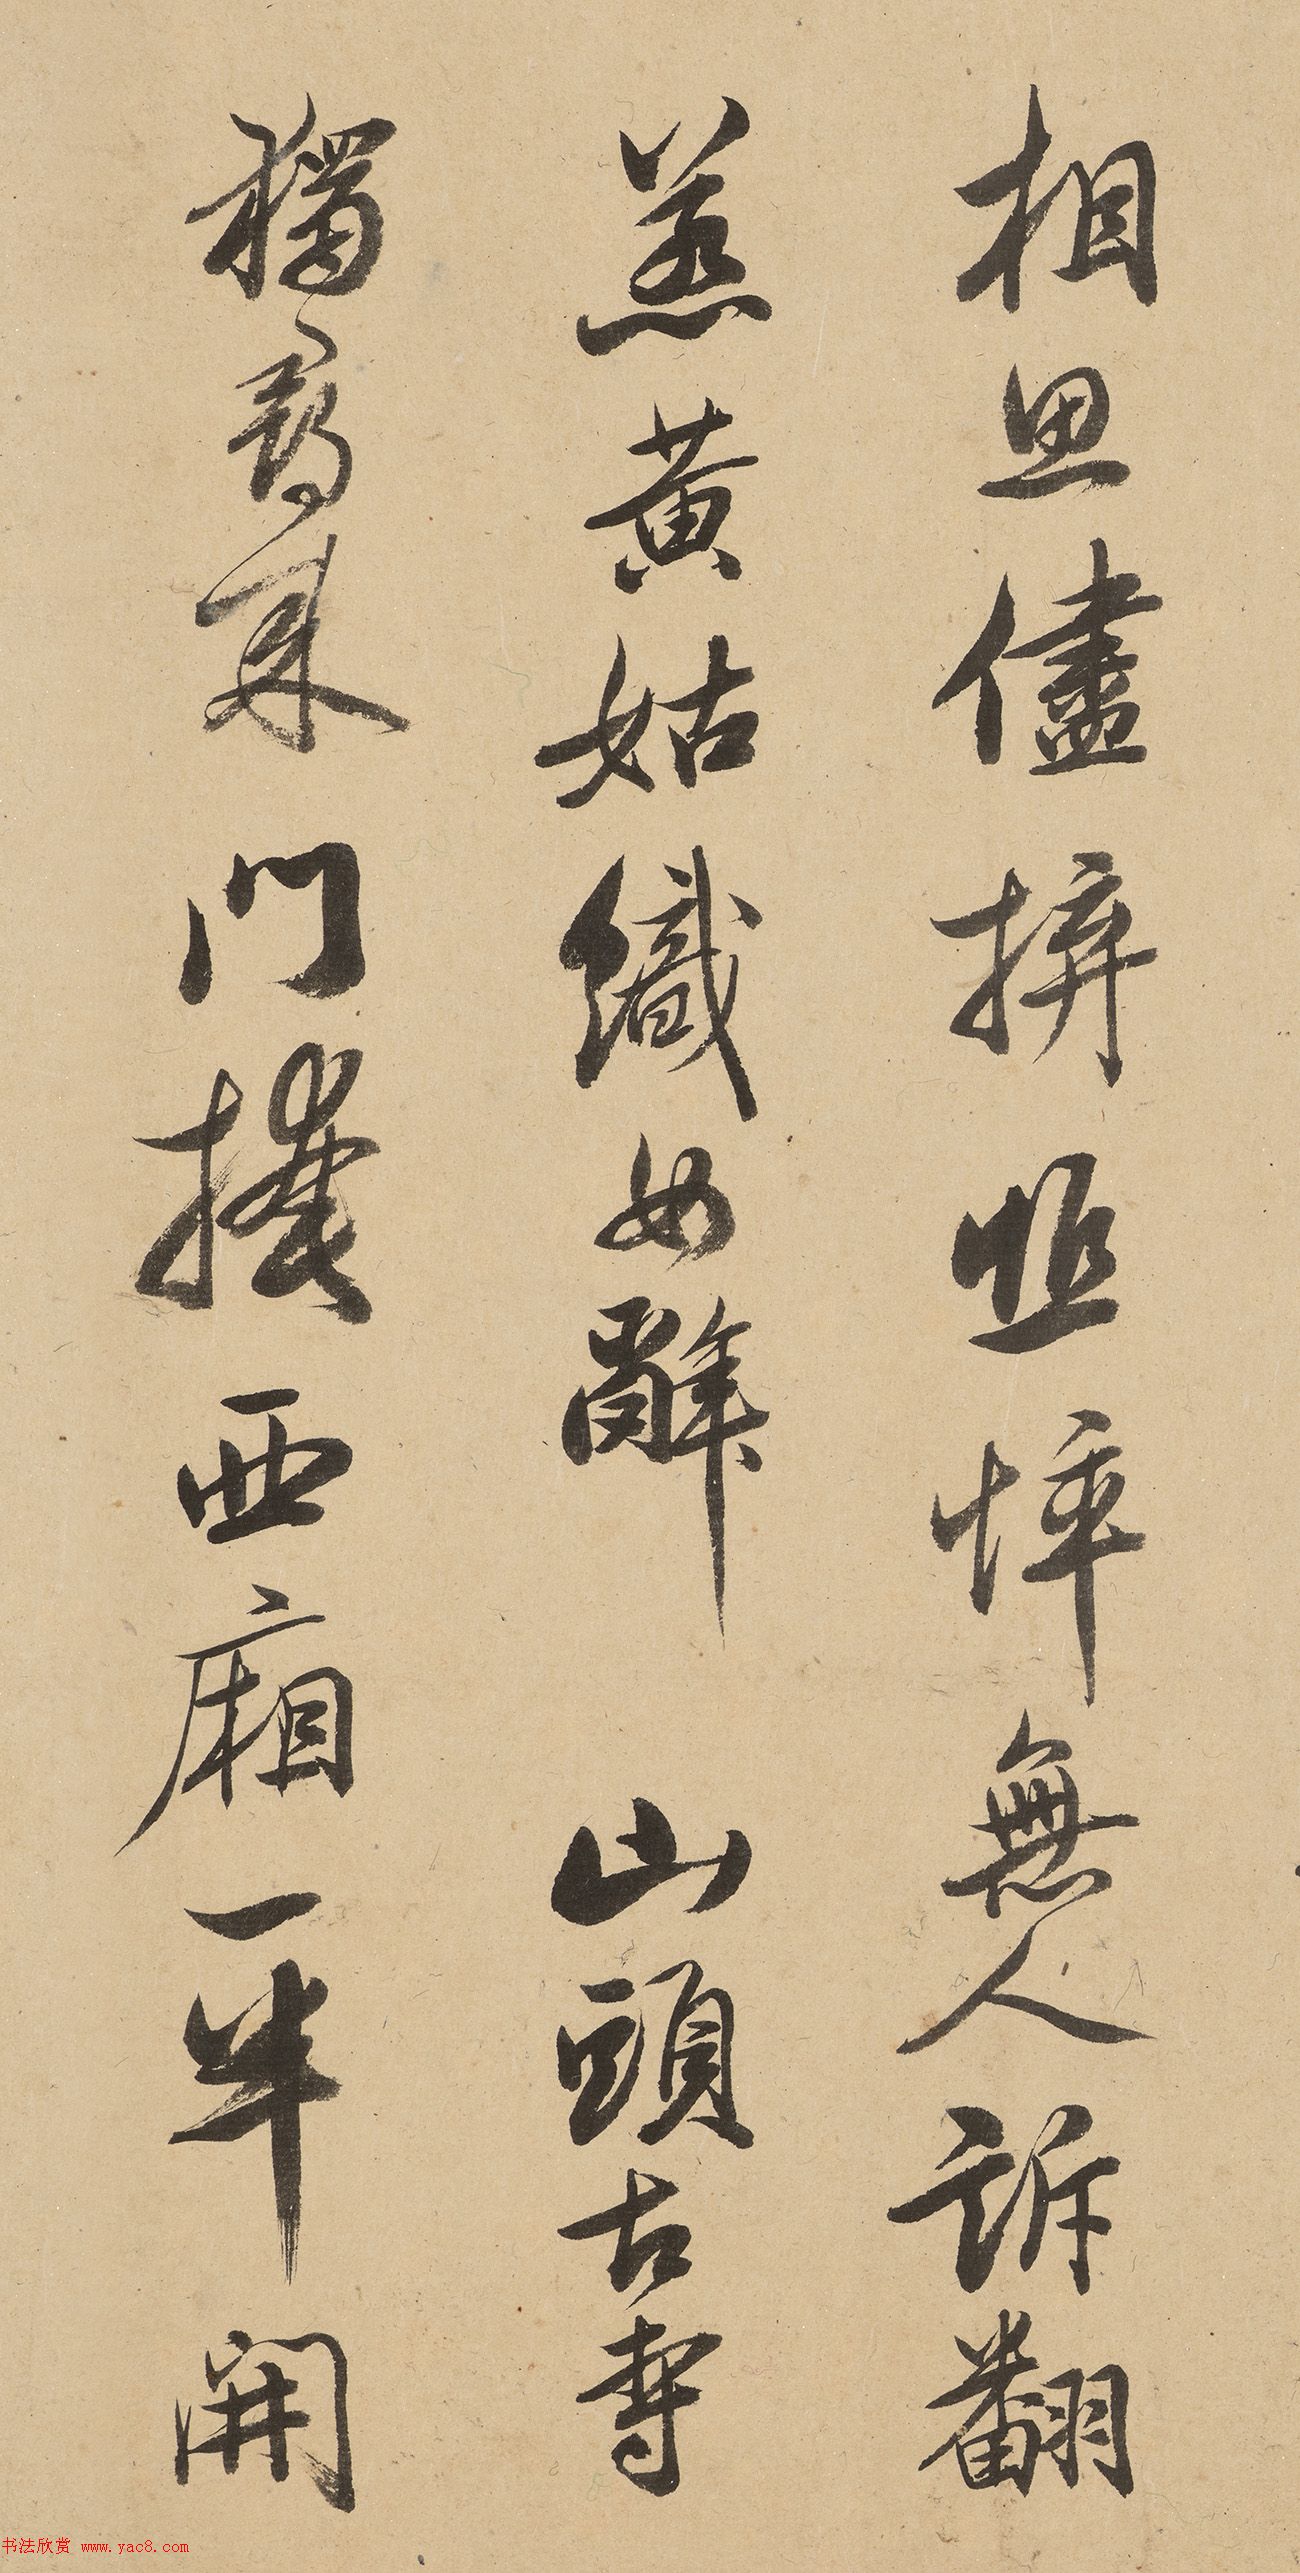 相思儘拚照悴無人訴翻
羔黃姑織女辭 山頭古寺
獨尋來門掩西廂一半開
书法欣赏 www.yac8.com